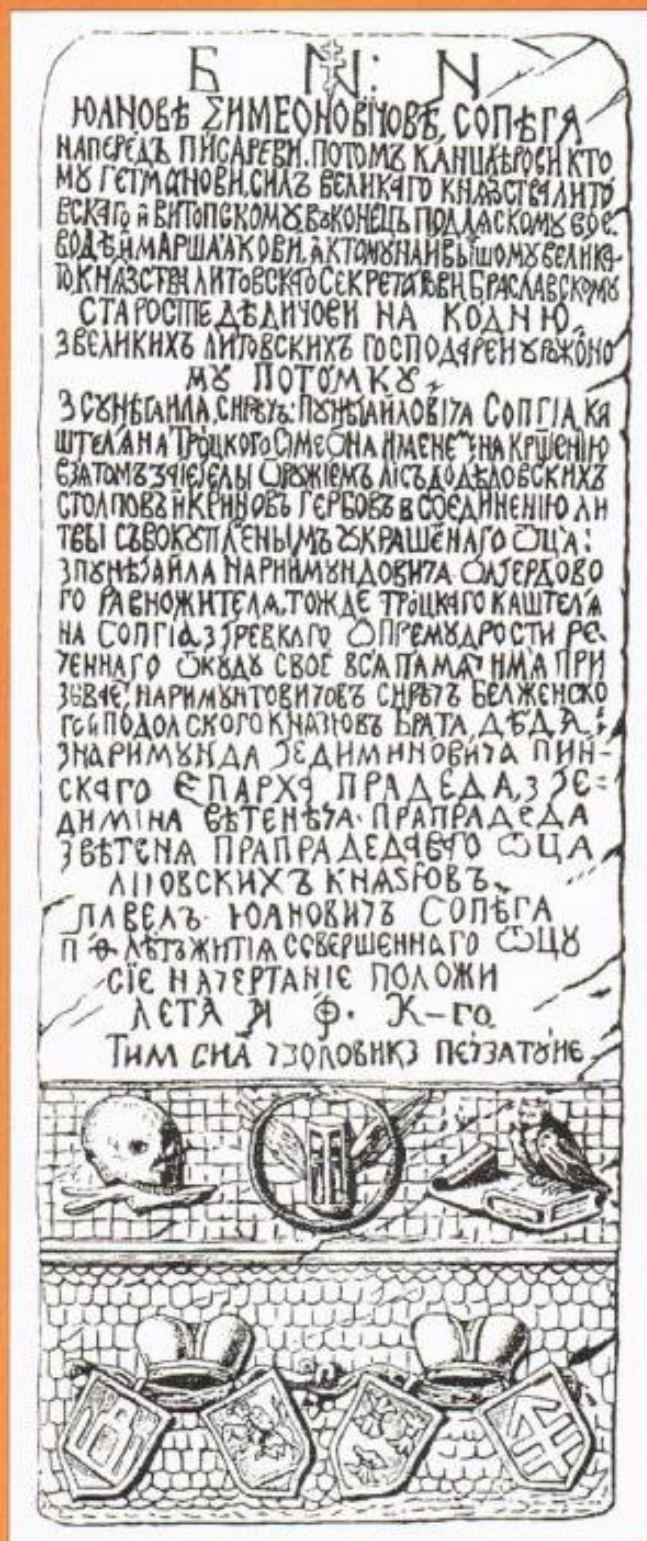 Б М: N
ЮАНОВѢ ΣИМЕОНОВИЧОВѢ, СОПѢГА
НАПЕРЕДЪ ПИСАРЕВИ. ПОТОМЪ КАНЦЛѢРОВИ КТО
МУ ГЕТМАНОВИ. СИЛЪ ВЕЛИКАГО КНАЗСТВА ЛИТО
ВСКАГО Й ВИТОПСКОМУ ВЪКОНЕЦЪ ПОДЛАСКОМУ ВОЄ
ВОДѢ Й МАРШАЛКОВИ, А КТОМУ НАИВЫШОМУ ВЕЛИКА
ГО, КНАЗСТВА ЛИТОВСКАГО СЕКРЕТАРЕВИ БРАСЛАВСКОМУ
СТАРОСТЕ ДѢДИЧОВИ НА КОДНЮ,
З ВЕЛИКИХЪ ЛИТОВСКИХЪ ГОСПОДАРЕЙ УРОЖОНО
МУ ПОТОМКУ
СОПГІА КА
ШТЕЛАНА ТРОЦКОГО СИМЕОНА НА КРШЕНІЮ
ѠРУЖІЕМЪ
СТОЛПОВЪ Й КРИНОВЪ ГЕРБОВЪ В СОЕДИНЕНІЮ ЛИ
ТВЫ СЪВОКУПЛЕНЫМЪ УКРАШЕНАГО ѾЦА:
НАРИМУНДОВИЧА ОЛГЕРДОВО
ГО РАВНОЖИТЕЛА, ТОЖДЕ ТРОЦКАГО КАШТЕЛА
НА СОПГІА З ГРЕВКАГО Ѿ ПРЕМУДРОСТИ РЕ
ЧЕННАГО ѾКУДУ СВОЕ ВСА ИМА ПРИ
НАРИМУНТОВИЧОВЪ СИРѢЧЪ БЕЛЖЕНСКО
ГО Й ПОДОЛСКОГО КНАЗЮВЪ БРАТА, ДѢДА;
З НАРИМУНДА ГЕДИМИНОВИЧА ПИН-
СКАГО ЕПАРХА ПРАДЕДА, З ГЄ=
ДИМІНА ВѢТЕНѢЧА. ПРАПРАДЕДА
З ВѢТЕНА ПРАПРАДЕДАВГО ѾЦА
ЛІТОВСКИХЪ КНАЅЮВЪ
ПАВЕЛЪ ЮАНОВИЧЪ СОПѢГА
П Ѳ ЛѢТЪ ЖИТІА СОВЕРШЕННАГО ѾЦУ
СІЕ НАЧЕРТАНІЕ ПОЛОЖИ
ЛЕТА Ф. К-ГО
ТИМ СИА